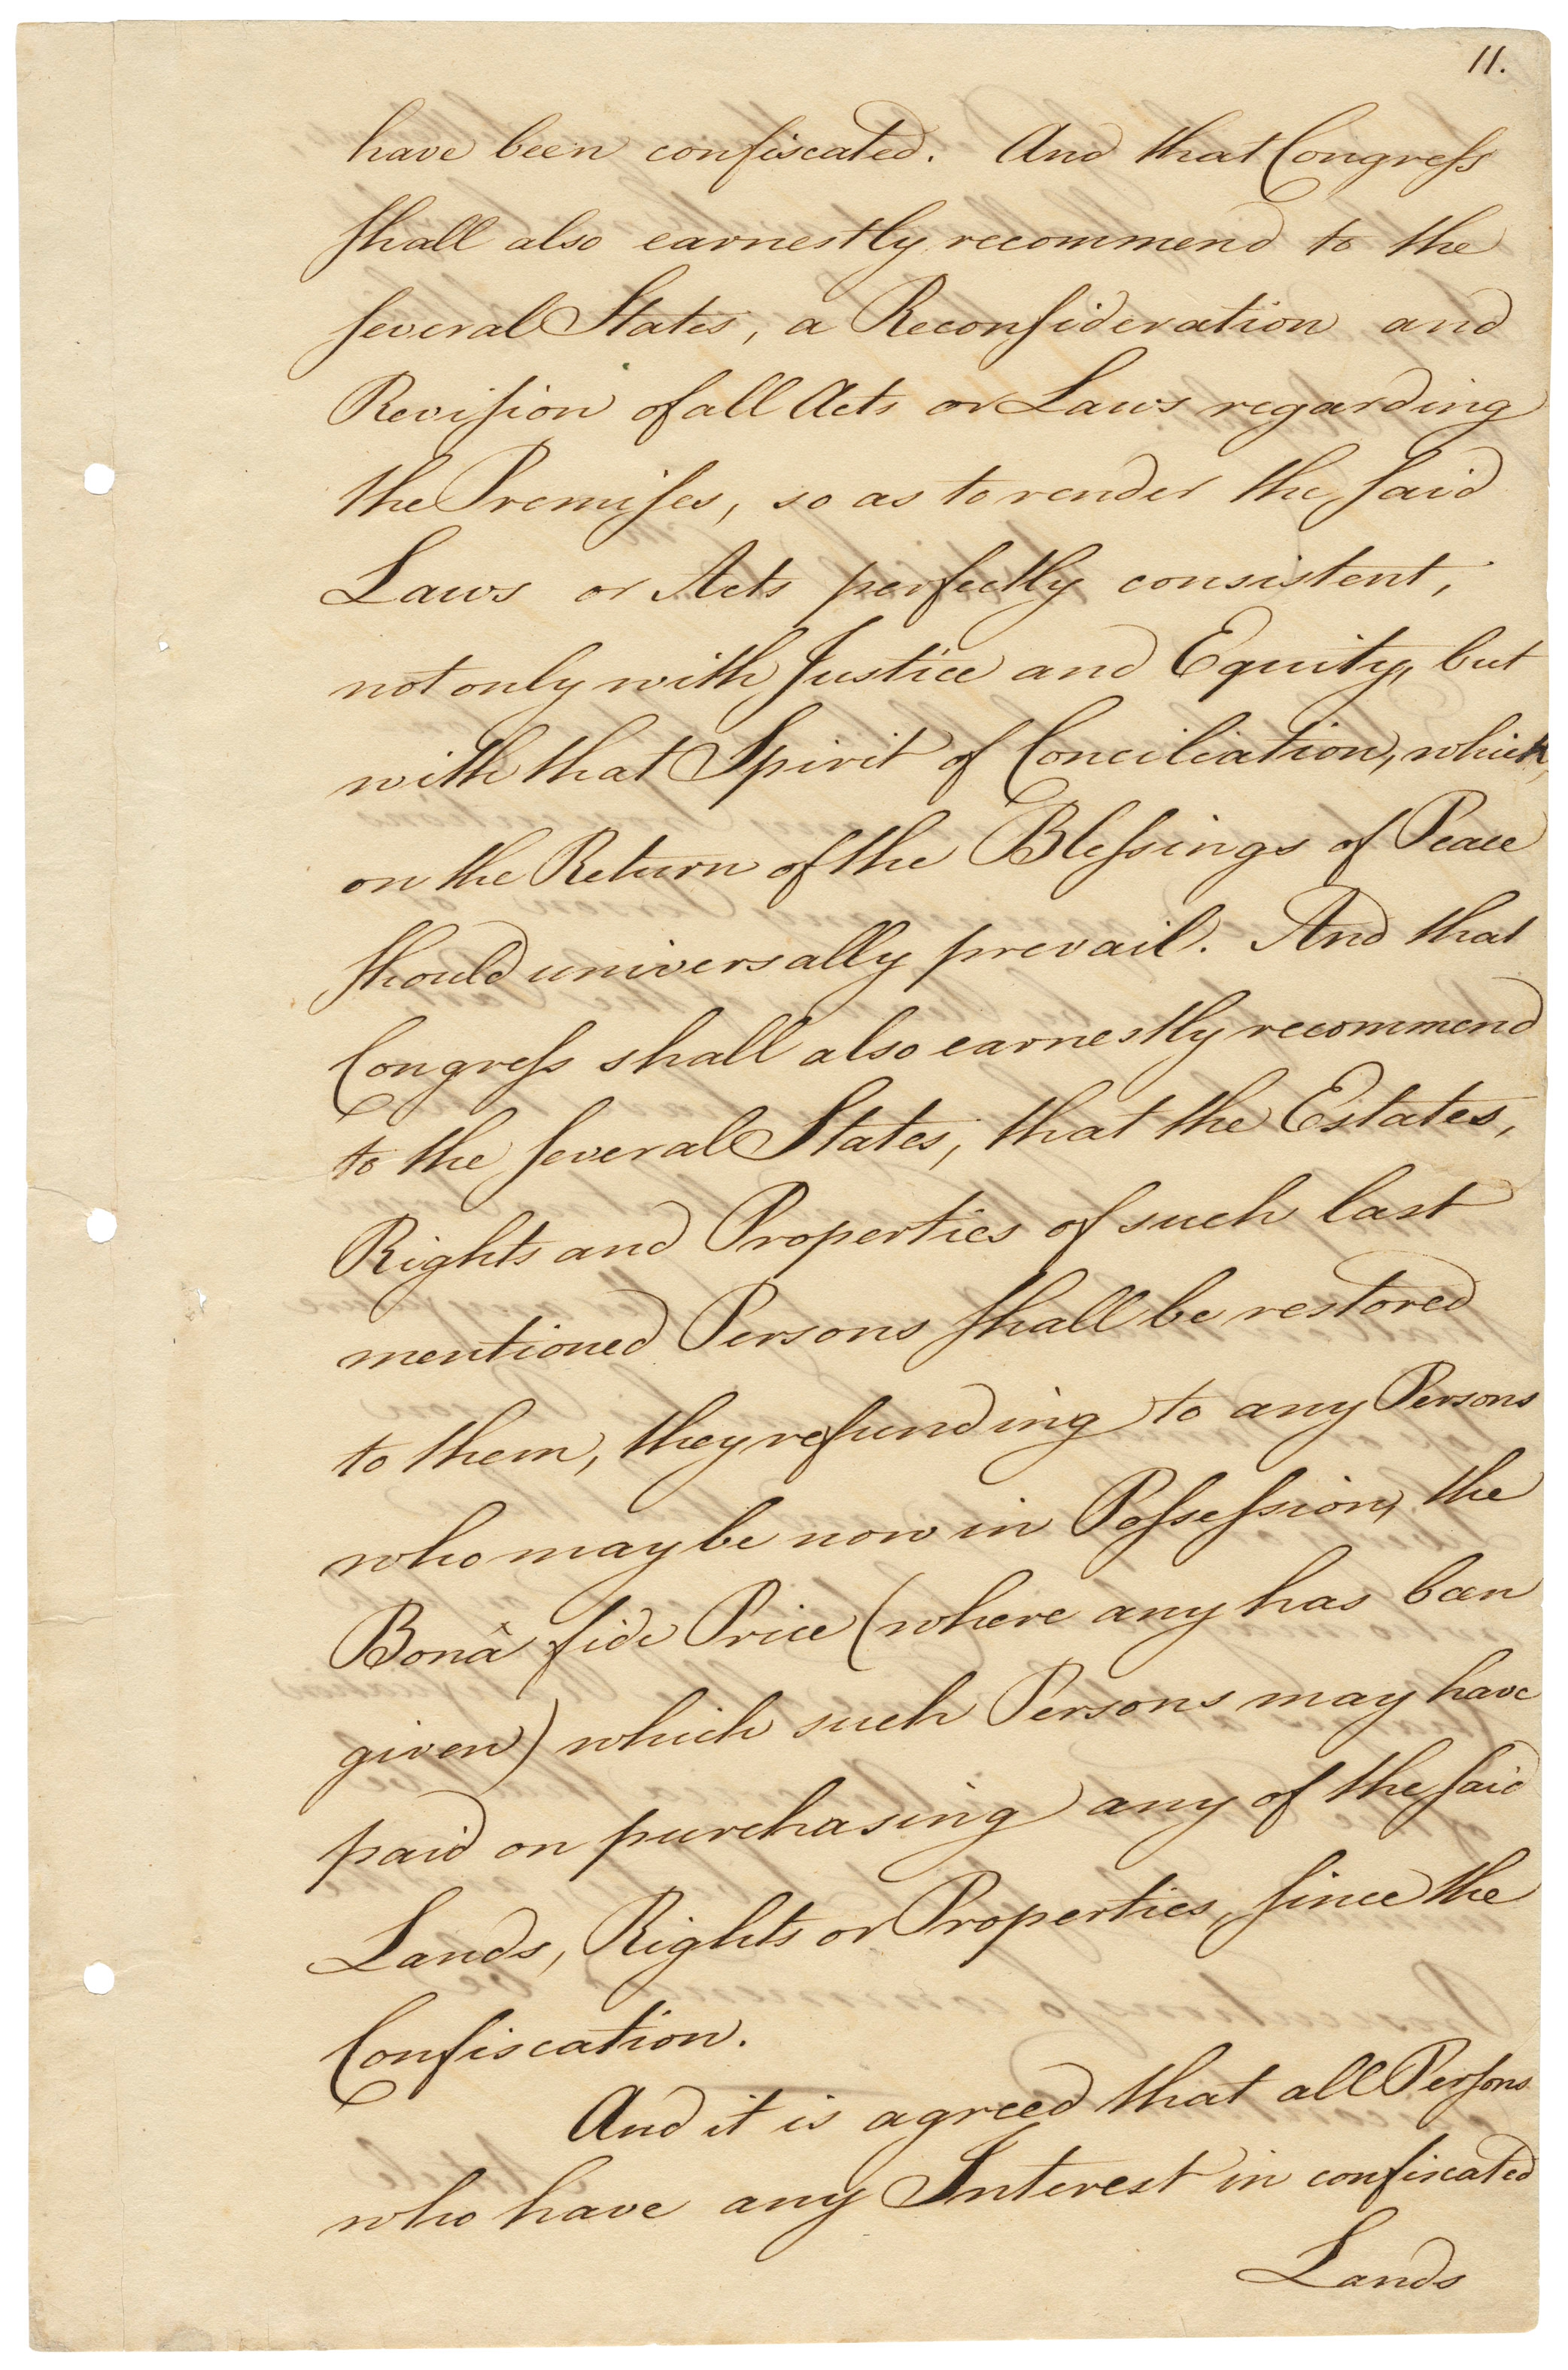 11.
have been confiscated. And that Congreſs
ſhall also earnestly recommend to the
ſeveral States, a Reconſideration and
Reviſion of all Acts or Laws regarding
the Premiſes, so as to render the ſaid
Laws or Acts perfectly consistent,
not only with Justice and Equity, but
with that Spirit of Conciliation, which,
on the Return of the Bleſsings of Peace
ſhould universally prevail. And that
Congreſs shall also earnestly recommend
to the ſeveral States, that the Estates,
Rights and Properties of such last
mentioned Persons ſhall be restored
to them, they refunding to any Persons
who may be now in Poſseſsion, the
Bonâ fide Price (where any has been
given) which such Persons may have
paid on purchasing any of the ſaid
Lands, Rights or Properties, ſince the
Confiscation.
And it is agreed that all Perſons
who have any Interest in confiscated
Lands